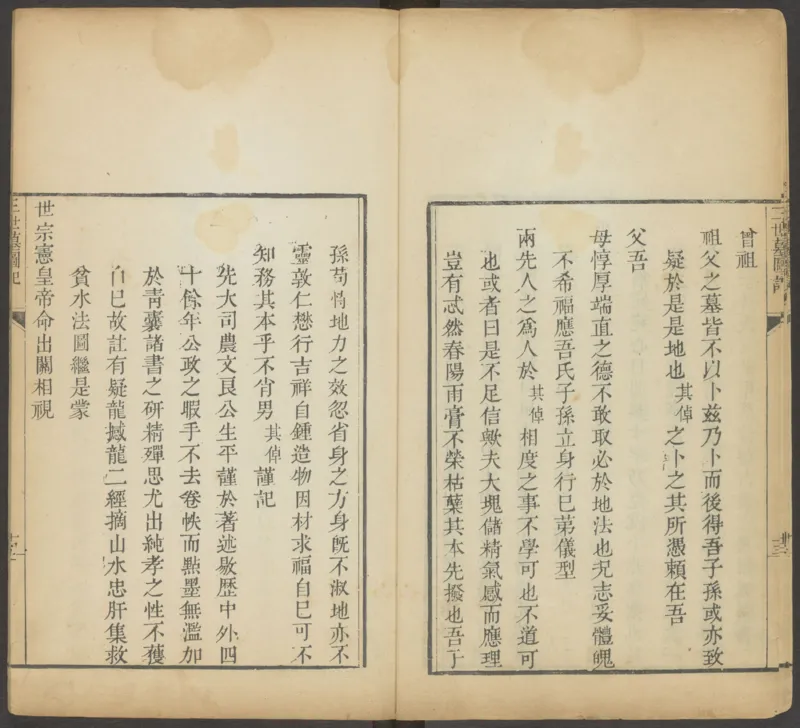 三世墓圖記
曾祖
祖父之墓皆不以卜茲乃卜而後得吾子孫或亦致
疑於是是地也其倬之卜之其所憑賴在吾
父吾
母惇厚端直之德不敢取必於地法也況志妥體魄
不希福應吾氏子孫立身行巳苐儀型
兩先人之爲人於其倬相度之事不學可也不道可
也或者曰是不足信歟夫大塊儲精氣感而應理
豈有忒然春陽雨膏不榮枯蘖其本先撥也吾子
孫苟恃地力之效忽省身之力身旣不淑地亦不
靈敦仁懋行吉祥自鍾造物因材求福自巳可不
知務其本乎不肖男其倬謹記
先大司農文良公生平謹於著述敭歷中外四
十餘年公政之暇手不去卷帙而點墨無濫加
於靑囊諸書之研精殫思尤出純孝之性不獲
自巳故註有疑龍撼龍二經摘山水忠肝集救
貧水法圖繼是蒙
世宗憲皇帝命出關相視
三世墓圖記